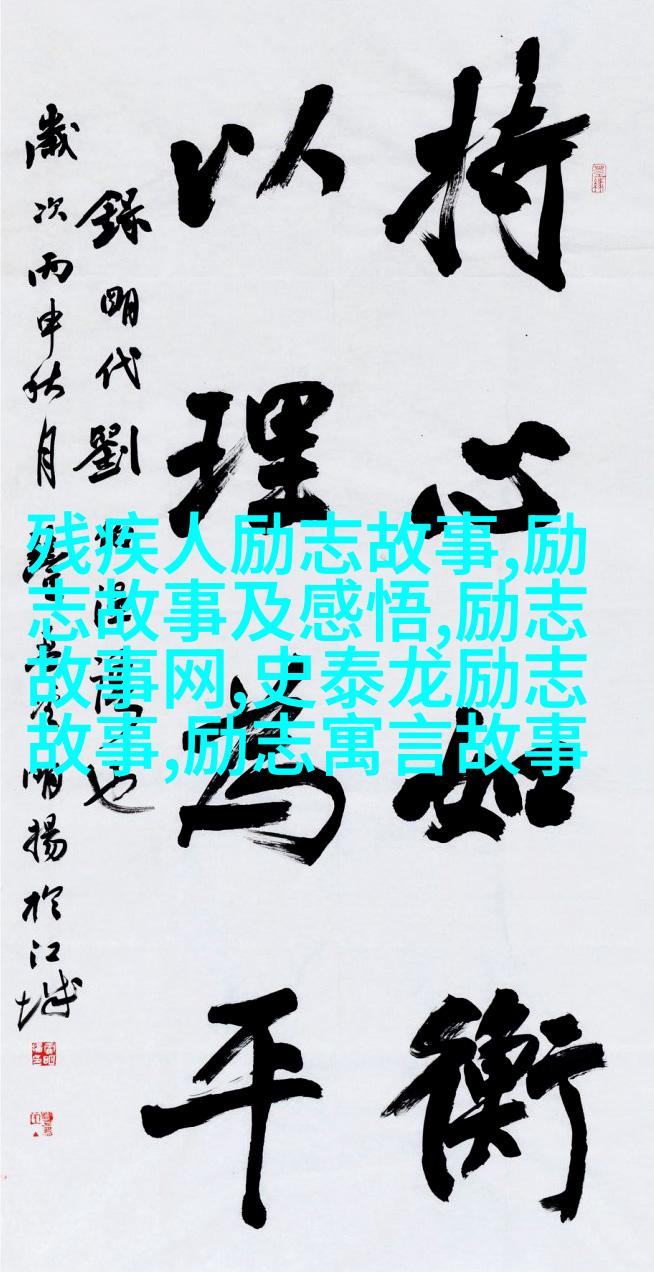 持心如衡
以理為平
錄明代劉
也
歲次丙申秋月
明揚於江城
残疾人励志故事,励
志故事及感悟,励志
故事网,史泰龙励志
故事,励志寓言故事